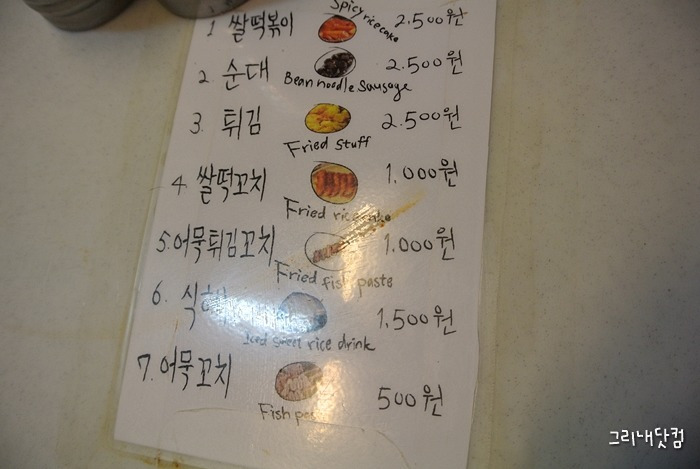 Spicy rice cake
1. 쌀떡볶이 2.500원
2. 순대 2.500원
Bean noodle Sausage
3. 튀김 2.500원
Fried Stuff
4. 쌀떡꼬치 1.000원
Fried rice cake
5. 어묵튀김꼬치 1.000원
Fried fish paste
6. 1.500원
Iced sweet rice drink
7. 어묵꼬치 500원
Fish
그리내닷컴